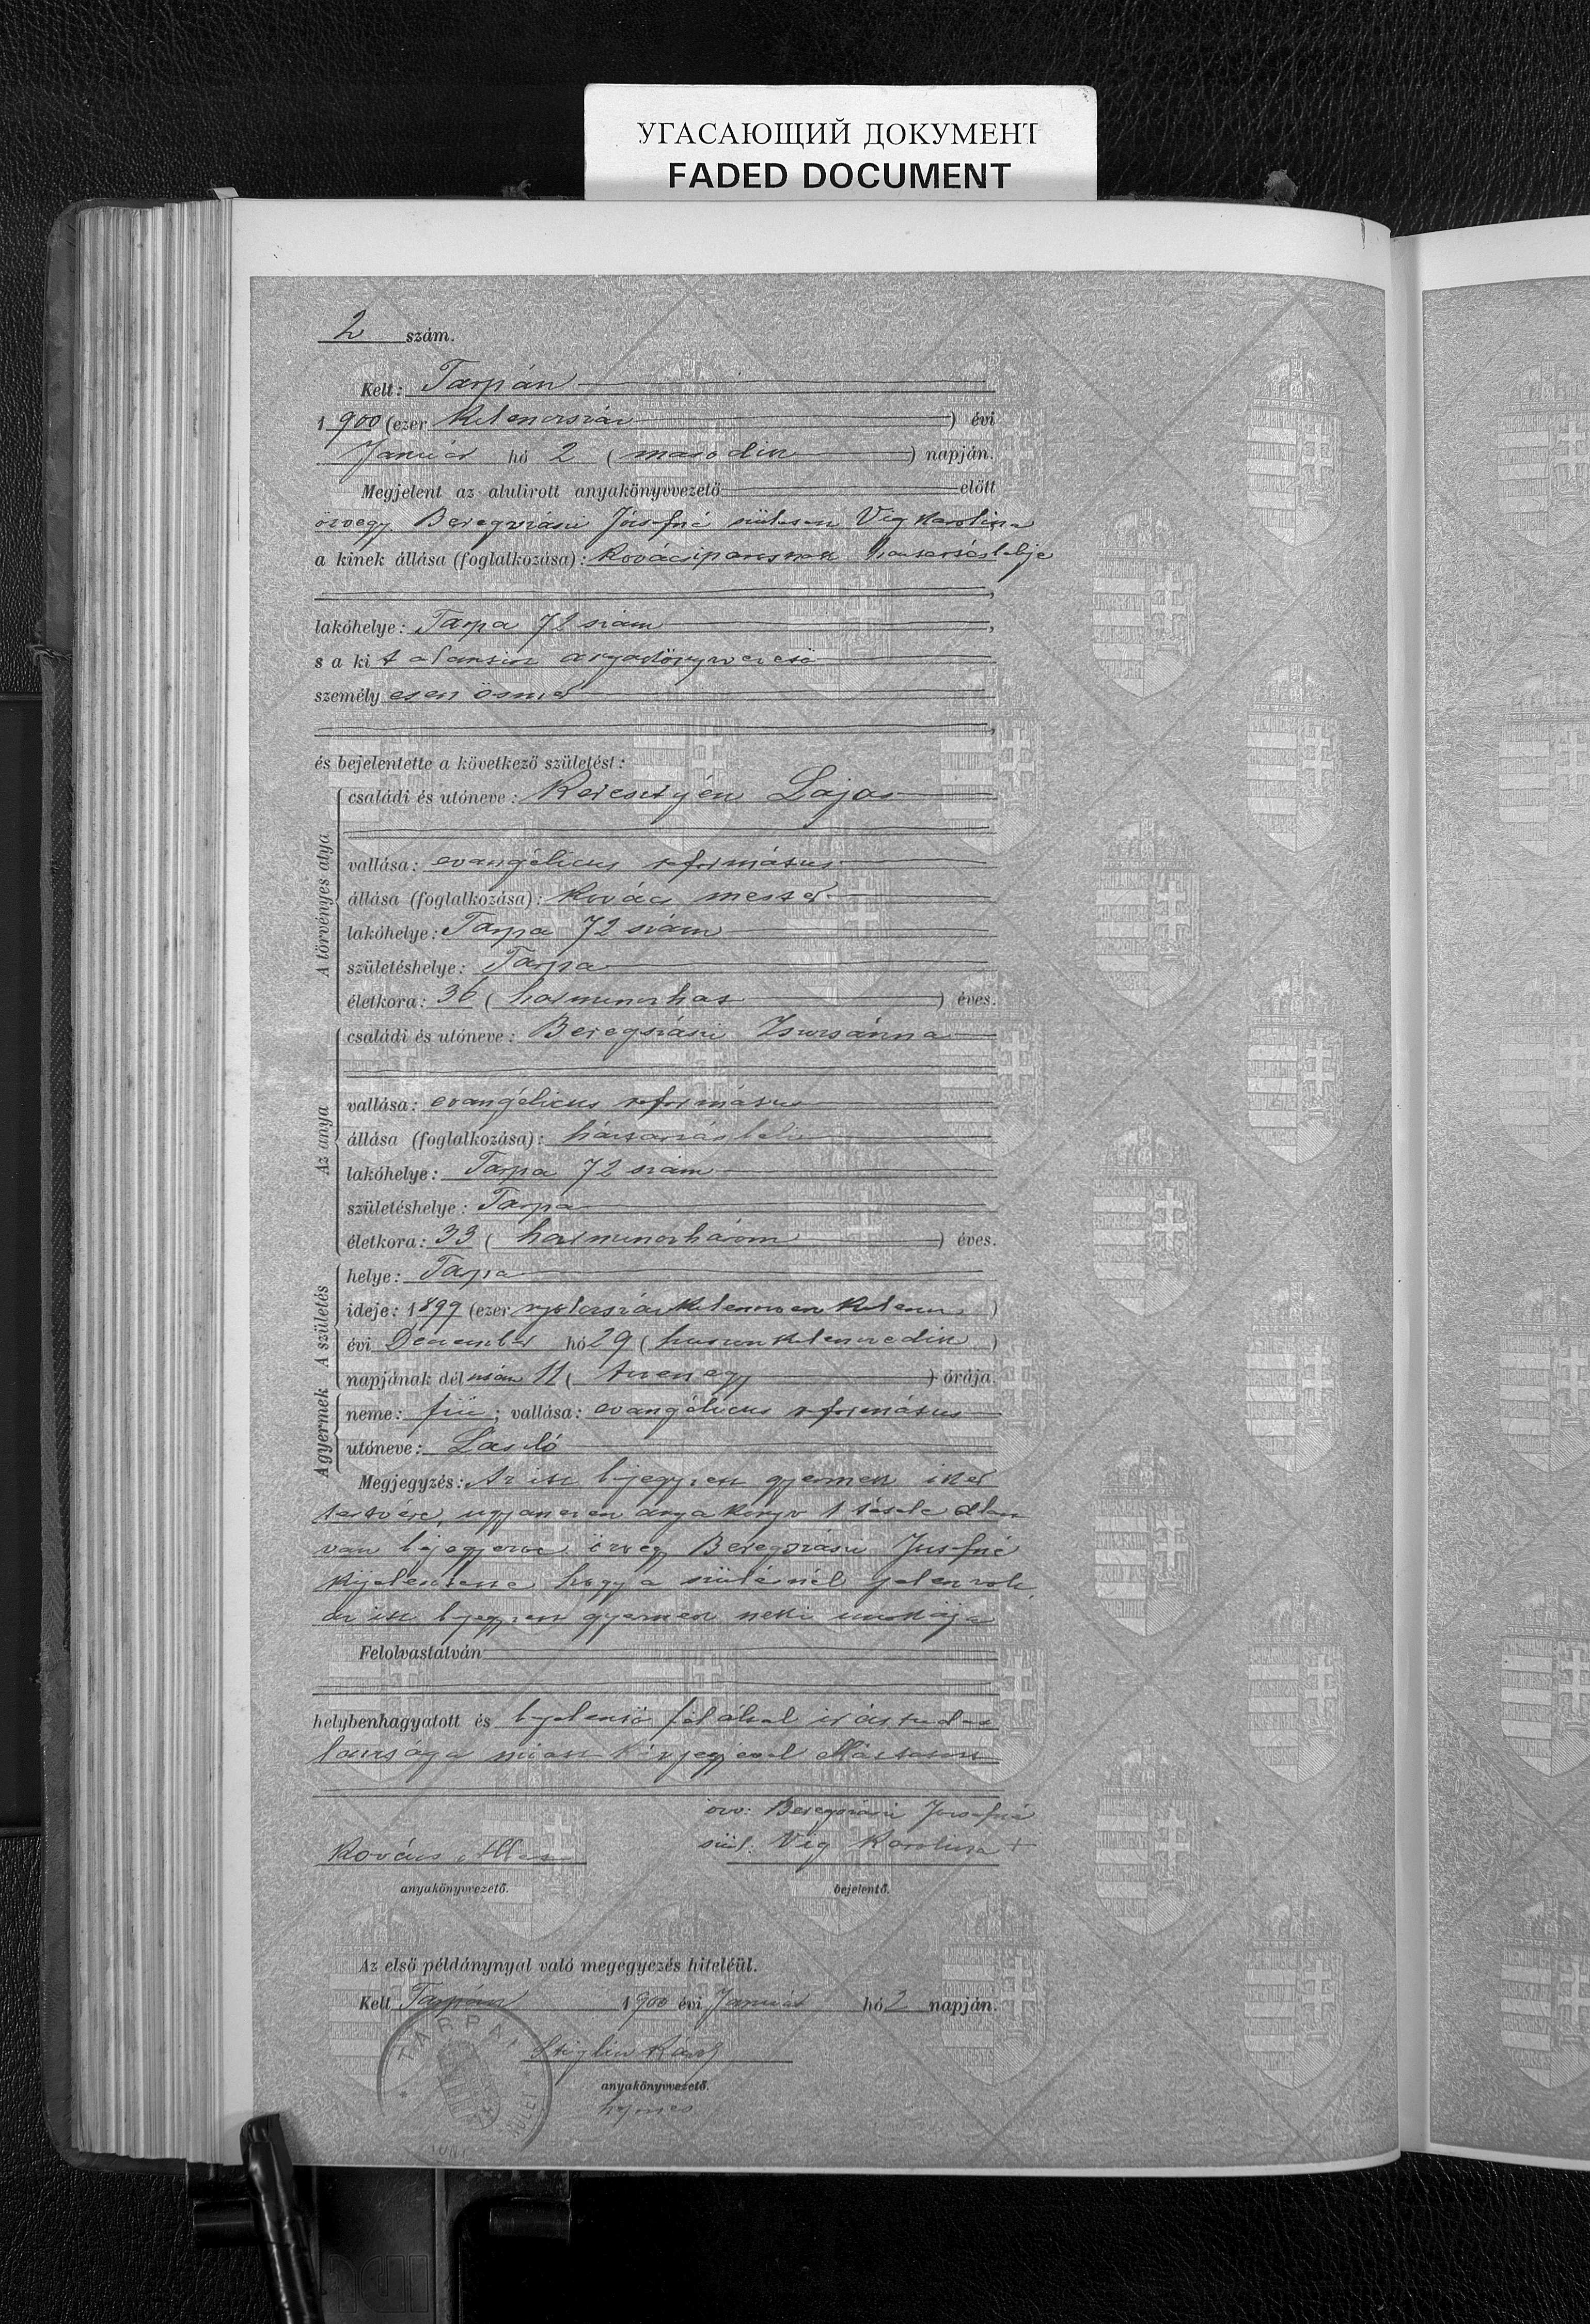 УГАСАЮЩИЙ ДОКУМЕНТ
FADED DOCUMENT
2 szám.
Kelt: Tarpán
1900 (ezer kilenczszáz) évi
Január hó 2 (második) napján.
Megjelent az alulirott anyakönyvvezető előtt
özvegy Beregszászi Józsefné született Vig Karolina
a kinek állása (foglalkozása): kovácsiparosnak háztartásbelije,
lakóhelye: Tarpa 72 szám,
s a kit alantirt anyakönyvvezető
személyesen ösmer,
és bejelentette a következő születést:
A törvényes atya
családi és utóneve: Keresztyén Lajos
vallása: evangélicus református
állása (foglalkozása): kovács mester
lakóhelye: Tarpa 72 szám
születéshelye: Tarpa
életkora: 36 (harminczhat) éves.
Az anya
családi és utóneve: Beregszászi Zsuzsánna
vallása: evangélicus református
állása (foglalkozása): háztartásbeli
lakóhelye: Tarpa 72 szám
születéshelye: Tarpa
életkora: 33 (harminczhárom) éves.
A születés
helye: Tarpa
ideje: 1899 (ezer nyolczszázkilenczvenkilencz)
évi December hó 29 (huszonkilenczedik)
napjának dél után 11 (tizenegy) órája.
A gyermek
neme: fiú; vallása: evangélicus református
utóneve: László
Megjegyzés: Az itt bejegyzett gyermek iker
testvére ugyanezen anyakönyv 1 tétele alatt
van bejegyezve özvegy Beregszászi Józsefné
kijelentette hogy a szülésnél jelen volt
az itt bejegyzett gyermek neki unokája
Felolvastatván
helybenhagyatott és bejelentő fél által irástudat
lansága miatt kézjegyével elláttatott
özv: Beregszászi Józsefné
szül: Vig Karolina +
Kovács
anyakönyvvezető.
bejelentő.
Az első példánynyal való megegyezés hiteléül.
Kelt Tarpán 1900 évi Január hó 2 napján.
Stiglin Károly
anyakönyvvezető.
helyettes
TARPAI